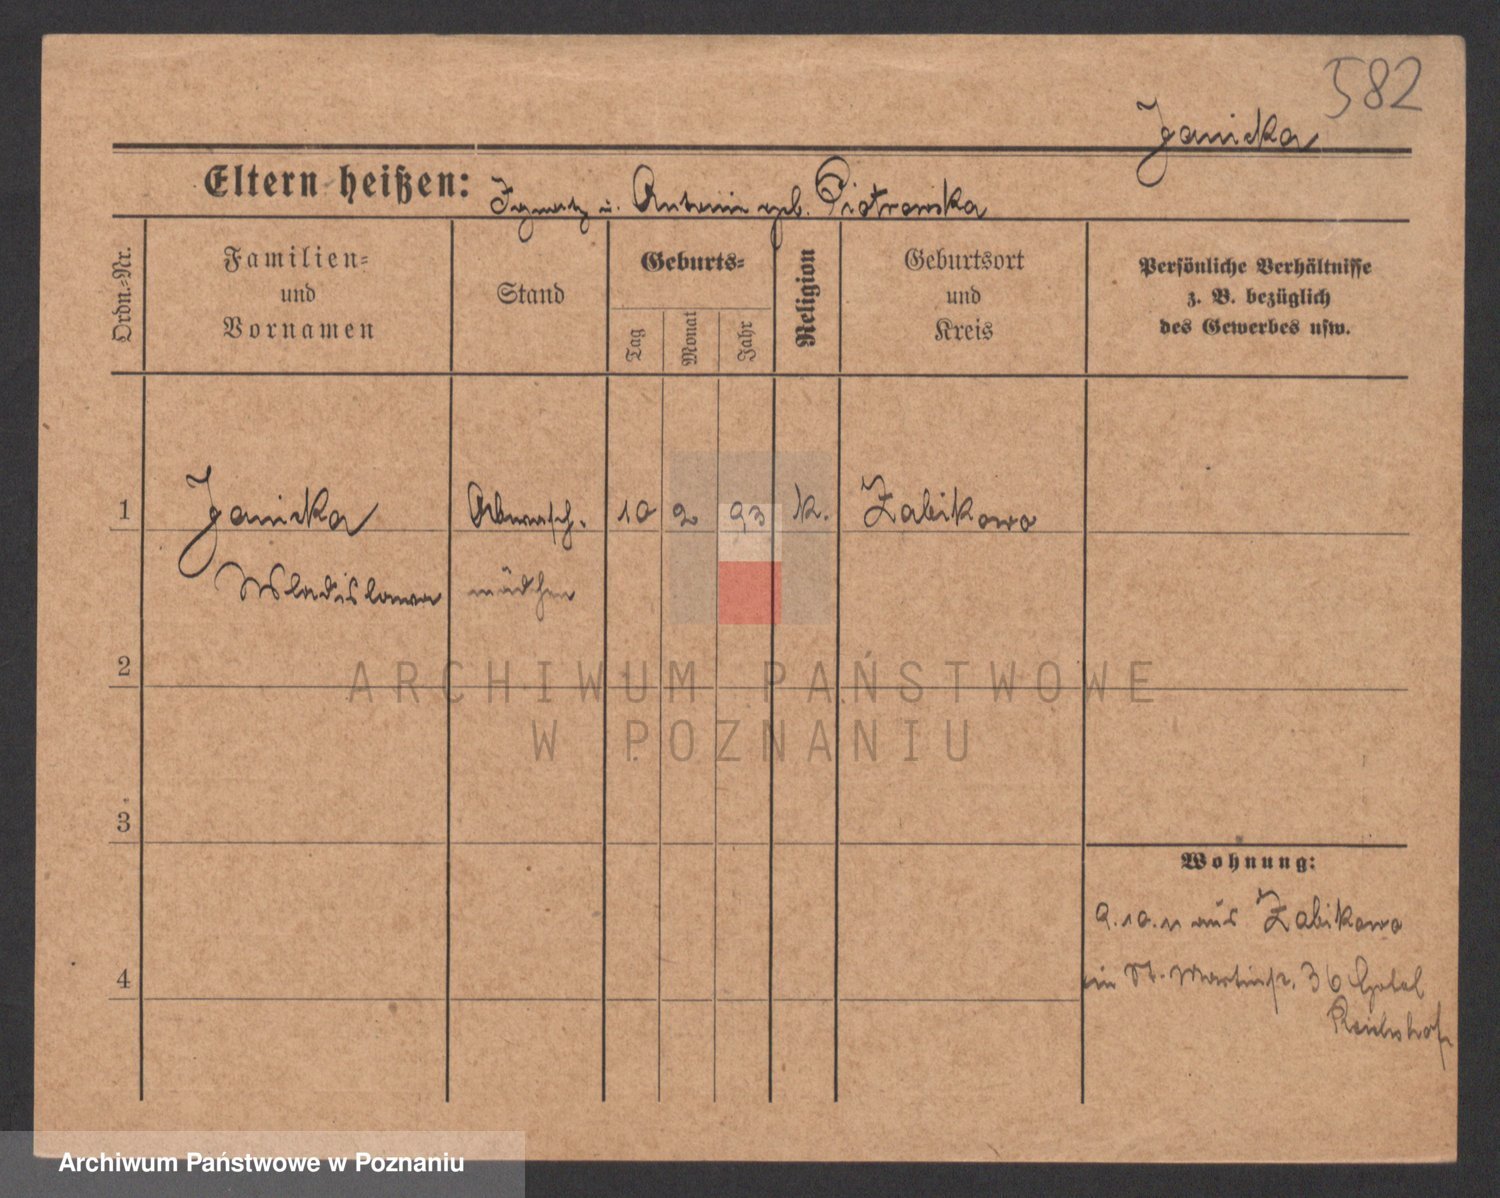 582
Janicka
Eltern heißen: Ignatz u. Antonie geb. Piotrowska
Ordn.-Nr.
Familien-
und
Vornamen
Stand
Geburts-
Tag
Monat
Jahr
Religion
Geburtsort
und
Kreis
Persönliche Verhältnisse
z. B. bezüglich
des Gewerbes usw.
1 Janicka Abwasch- 10 2 93 k. Zabikowo
Wladislawa mädchen
2
ARCHIWUM PAŃSTWOWE
W POZNANIU
3
Wohnung:
2.10.11 aus Zabikowo
4
St. Martinstr. 36 Hotel
Reichshof
Archiwum Państwowe w Poznaniu